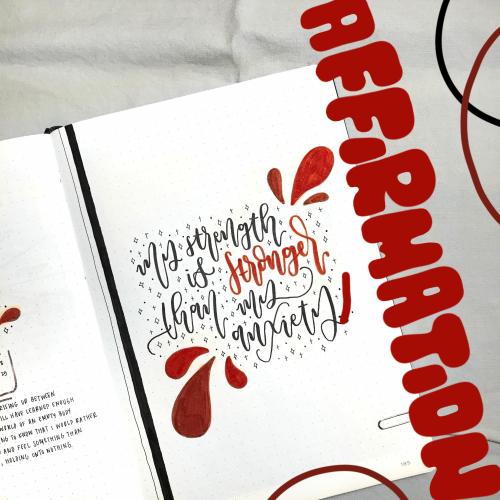 AFFIRMATION
my strength
is stronger
than my
anxiety
RISING UP BETWEEN
ILL HAVE LEARNED ENOUGH
WORLD OF AN EMPTY BODY
NG TO KNOW THAT I WOULD RATHER
AND FEEL SOMETHING THAN
HOLDING ONTO NOTHING.